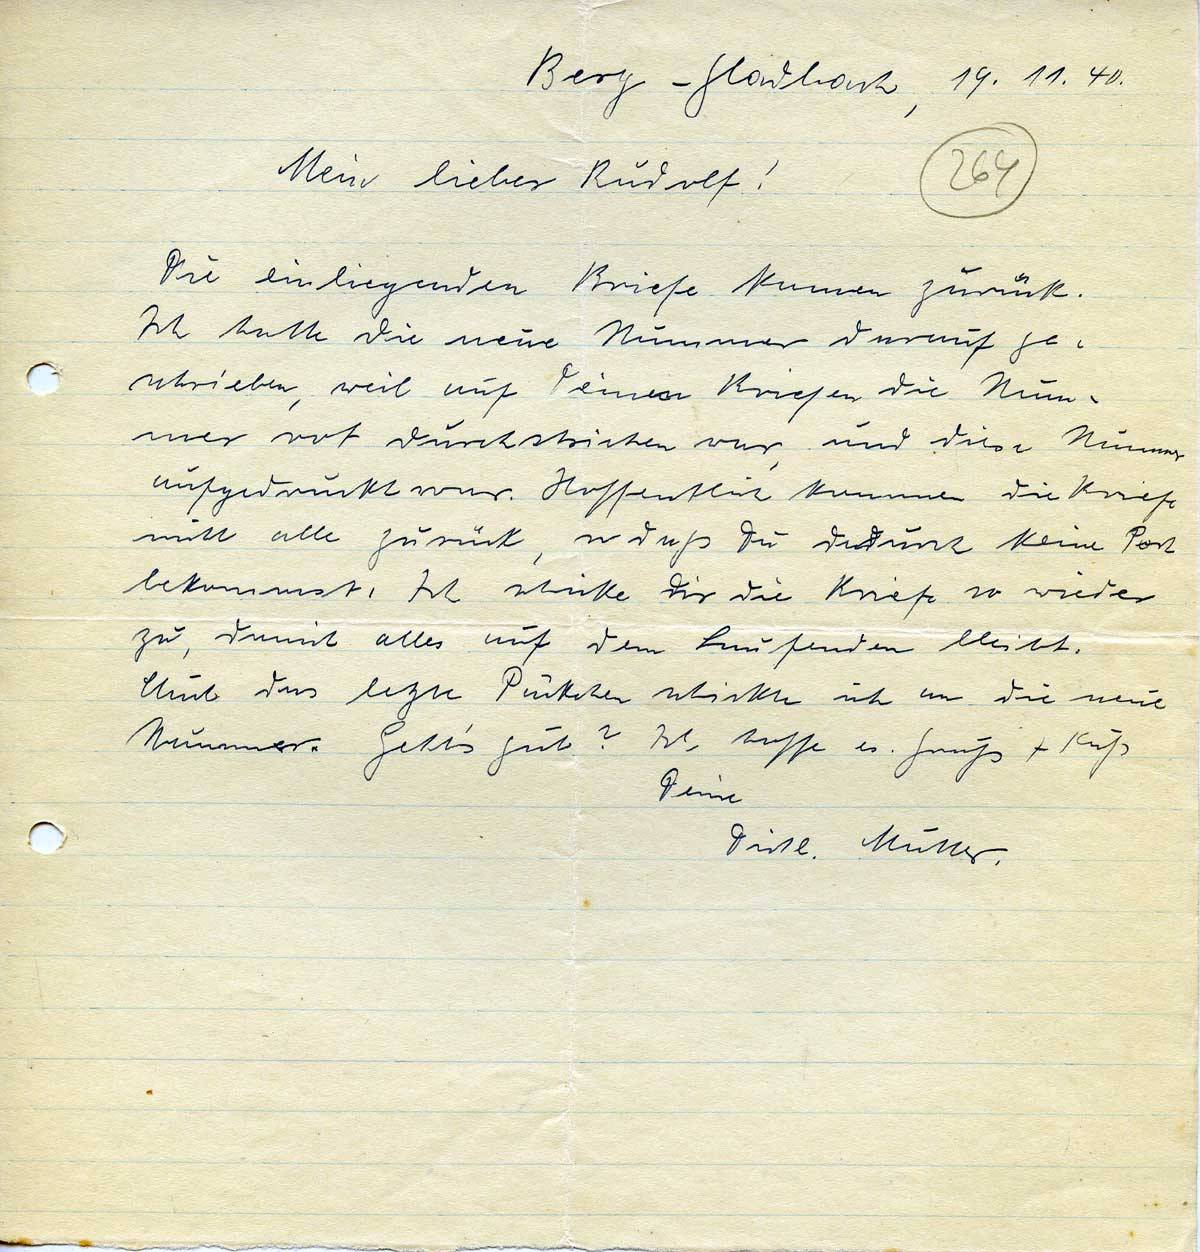 Berg-Gladbach, 19. 11. 40.
264
Mein lieber Rudolf!
Die einliegenden Briefe kamen zurück.
Ich hatte die neue Nummer darauf ge-
schrieben, weil auf Deinen Briefen die Num-
mer rot durchstrichen war, und diese Nummer
aufgedruckt war. Hoffentlich kommen die Briefe
nicht alle zurück, so daß Du dadurch keine Post
bekommst. Ich schicke Dir die Briefe so wieder
zu, damit alles auf dem Laufenden bleibt.
Und das letzte Päckchen schickte ich an die neue
Nummer. Geht's gut? Ich hoffe es. Gruß + Kuß
Deine
Mutter.